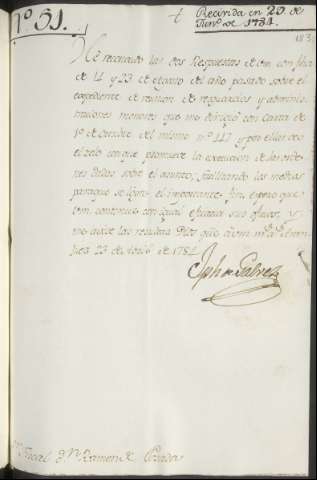 N.º 51.
Recivida en 29. de
Jun.º de 1784.
183
He recivido las dos Respuestas de Vm. con fha.
de 14 y 23 de del año pasado sobre el
expediente de reunion de resguardos y adminis-
traciones menores que me dirigió con carta de
1.º de Octubre del mismo n.º 117 y por ellas veo
el zelo con que promueve la execucion de las orde-
nes Rles sobre el asunto, facilitando los medios
para que se logre el importante fin, espero que
Vm. continue con igual eficacia sus oficios, y
me avise las resultas Dios gue. á Vm. m.s a.s Aran-
juez 23 de Abril de 1784
Jph de Galvez
S.r Fiscal D.n Ramon de Posada